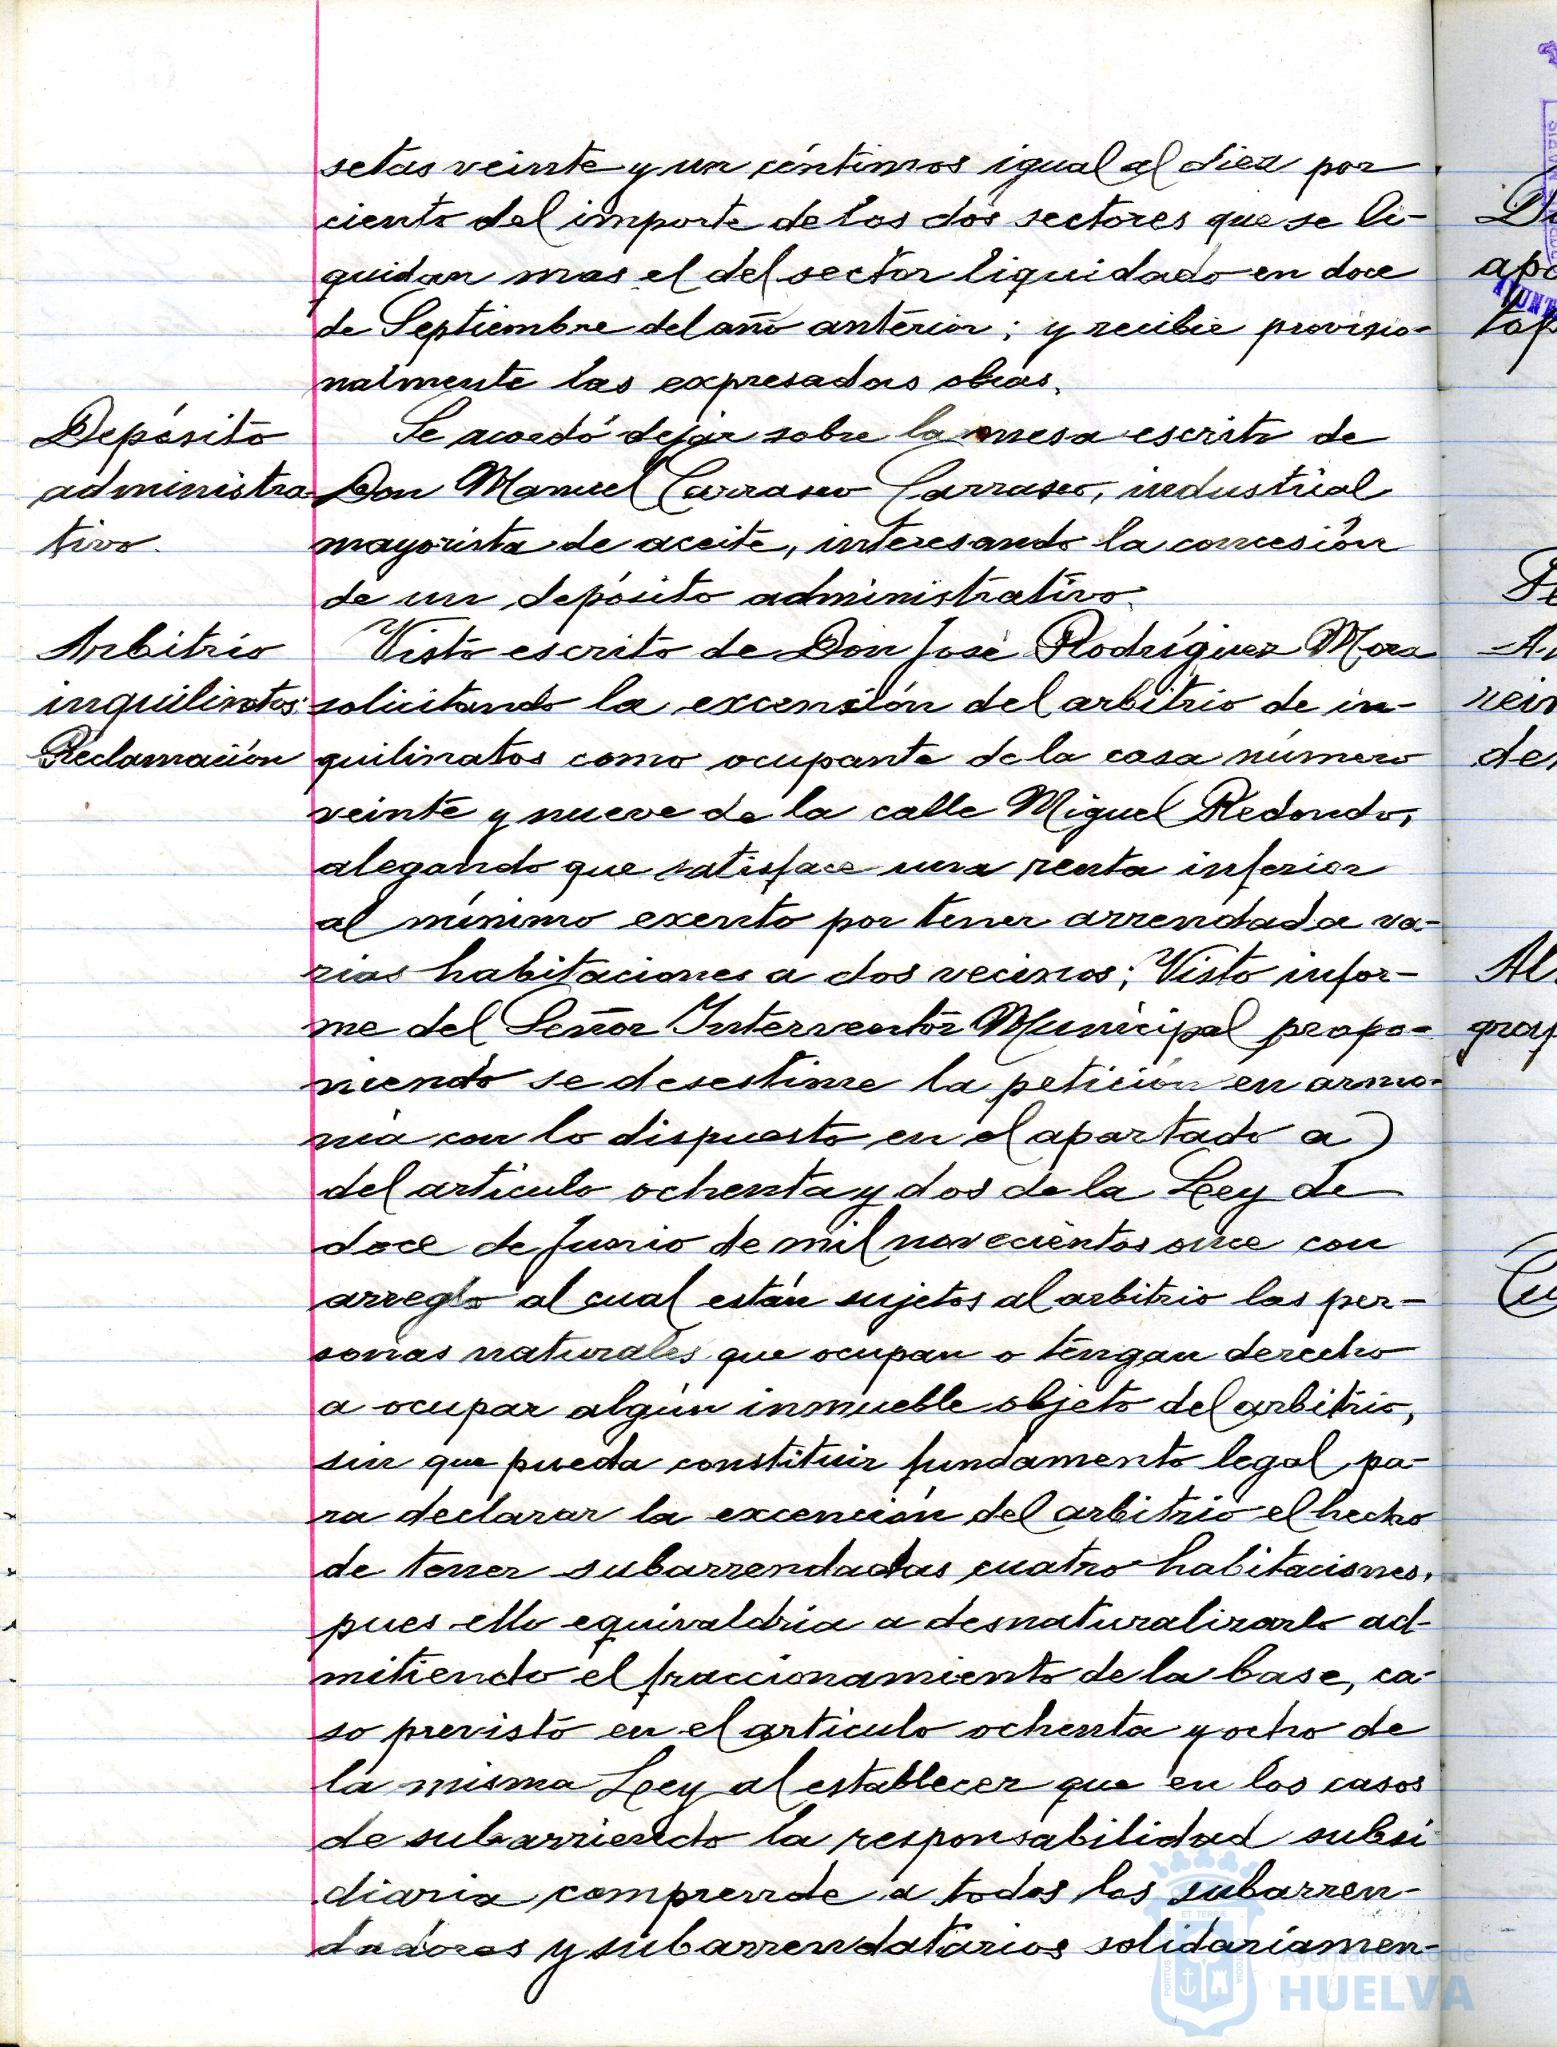 setas veinte y un céntimos igual al diez por
ciento del importe de los dos sectores que se li-
quidan mas el del sector liquidado en doce
de Septiembre del año anterior; y recibir provisio-
nalmente las expresadas obras.
Depósito
administra-
tivo.
Se acordó dejar sobre la mesa escrito de
Don Manuel Carrasco Carrasco, industrial
mayorista de aceite, interesando la concesión
de un depósito administrativo.
Arbitrio
inquilinatos:
Reclamación
Visto escrito de Don José Rodríguez Mora
solicitando la excensión del arbitrio de in-
quilinatos como ocupante de la casa número
veinte y nueve de la calle Miguel Redondo,
alegando que satisface una renta inferior
al mínimo exento por tener arrendada va-
rias habitaciones a dos vecinos; Visto infor-
me del Señor Interventor Municipal propo-
niendo se desestime la petición en armo-
nia con lo dispuesto en el apartado a)
del artículo ochenta y dos de la Ley de
doce de Junio de mil novecientos once con
arreglo al cual están sujetos al arbitrio las per-
sonas naturales que ocupan o tengan derecho
a ocupar algún inmueble objeto del arbitrio,
sin que pueda constituir fundamento legal pa-
ra declarar la excención del arbitrio el hecho
de tener subarrendadas cuatro habitaciones,
pues ello equivaldria a desnaturalizarlo ad-
mitiendo el fraccionamiento de la base, ca-
so previsto en el artículo ochenta y ocho de
la misma Ley al establecer que en los casos
de subarriendo la responsabilidad subsi
diaria comprende a todos los subarren-
dadores y subarrendatarios solidariamen-
Ayuntamiento de
HUELVA